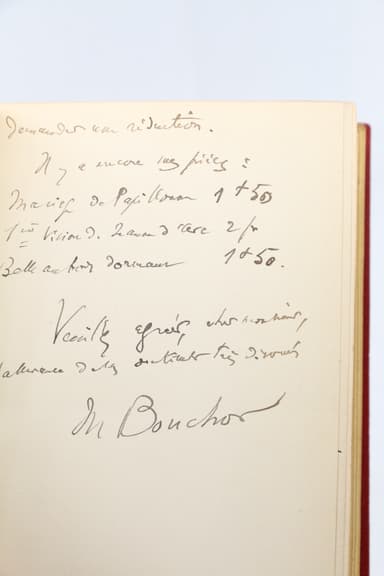 Demander une réduction.
Il y a encore mes pièces :
Mariage de Papillonne 1f50
1ère Vision de Jeanne d'Arc 2 fr
Belle au bois dormant 1f50.
Veuillez agréer, cher monsieur,
l'assurance de mes sentiments très dévoués
M Bouchor